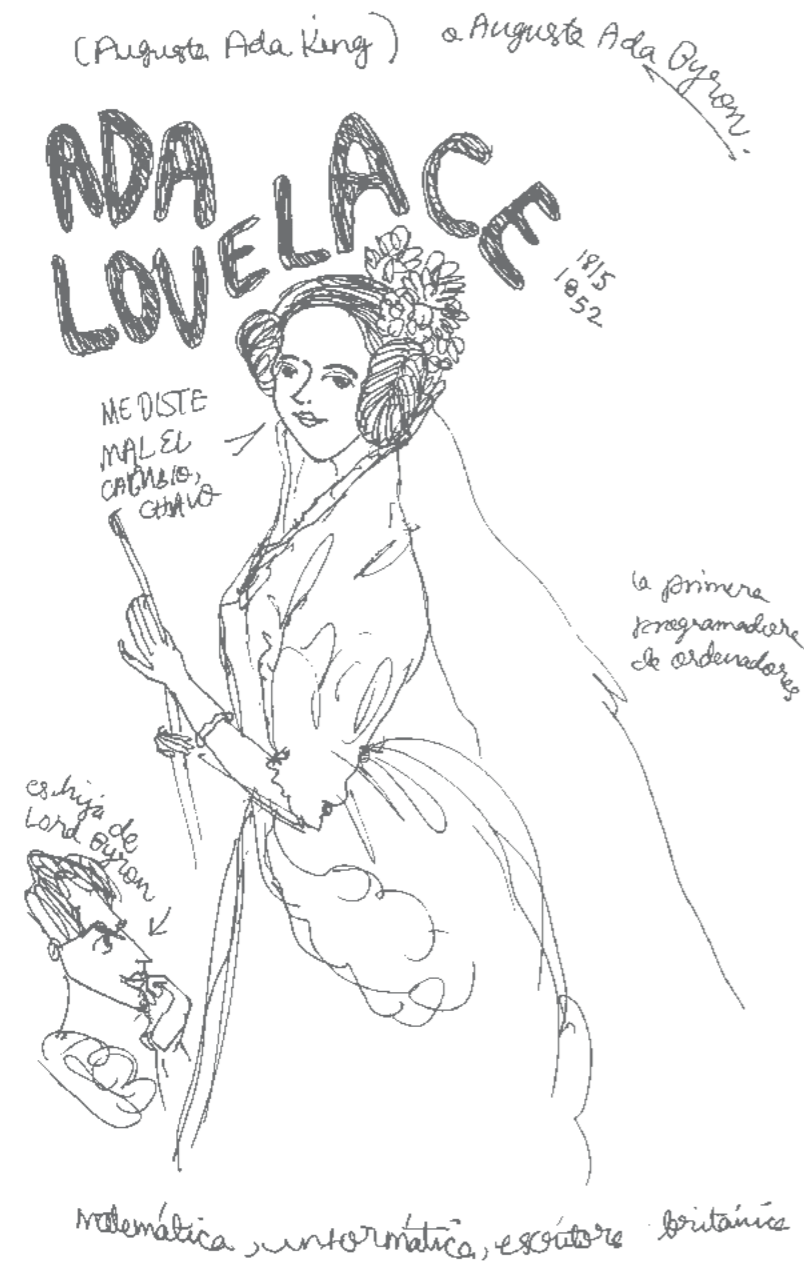 (Augusta Ada King)
o Augusta Ada Byron.
ADA
LOVELACE
1815
1852
ME DISTE
MAL EL
CAMBIO,
CHAVO
la primera
programadora
de ordenadores
es hija de
Lord Byron
matemática, informática, escritora británica